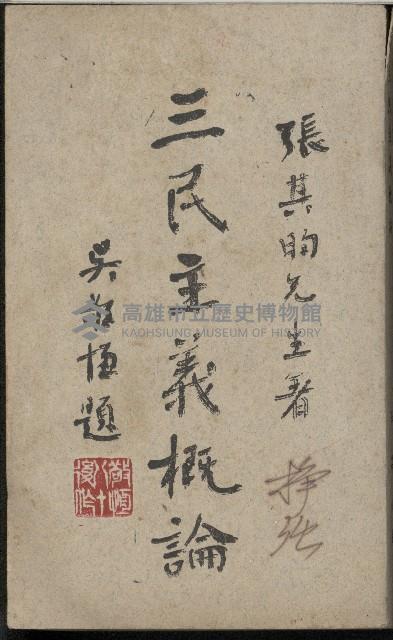 張其昀先生著
三民主義概論
吳敬恆題
高雄市立歷史博物館
KAOHSIUNG MUSEUM OF HISTORY